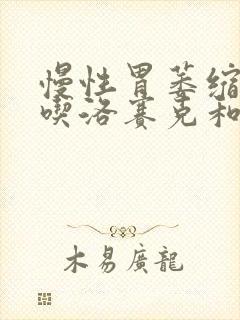 慢性胃萎缩
喫洛赛克和
木易廣龍